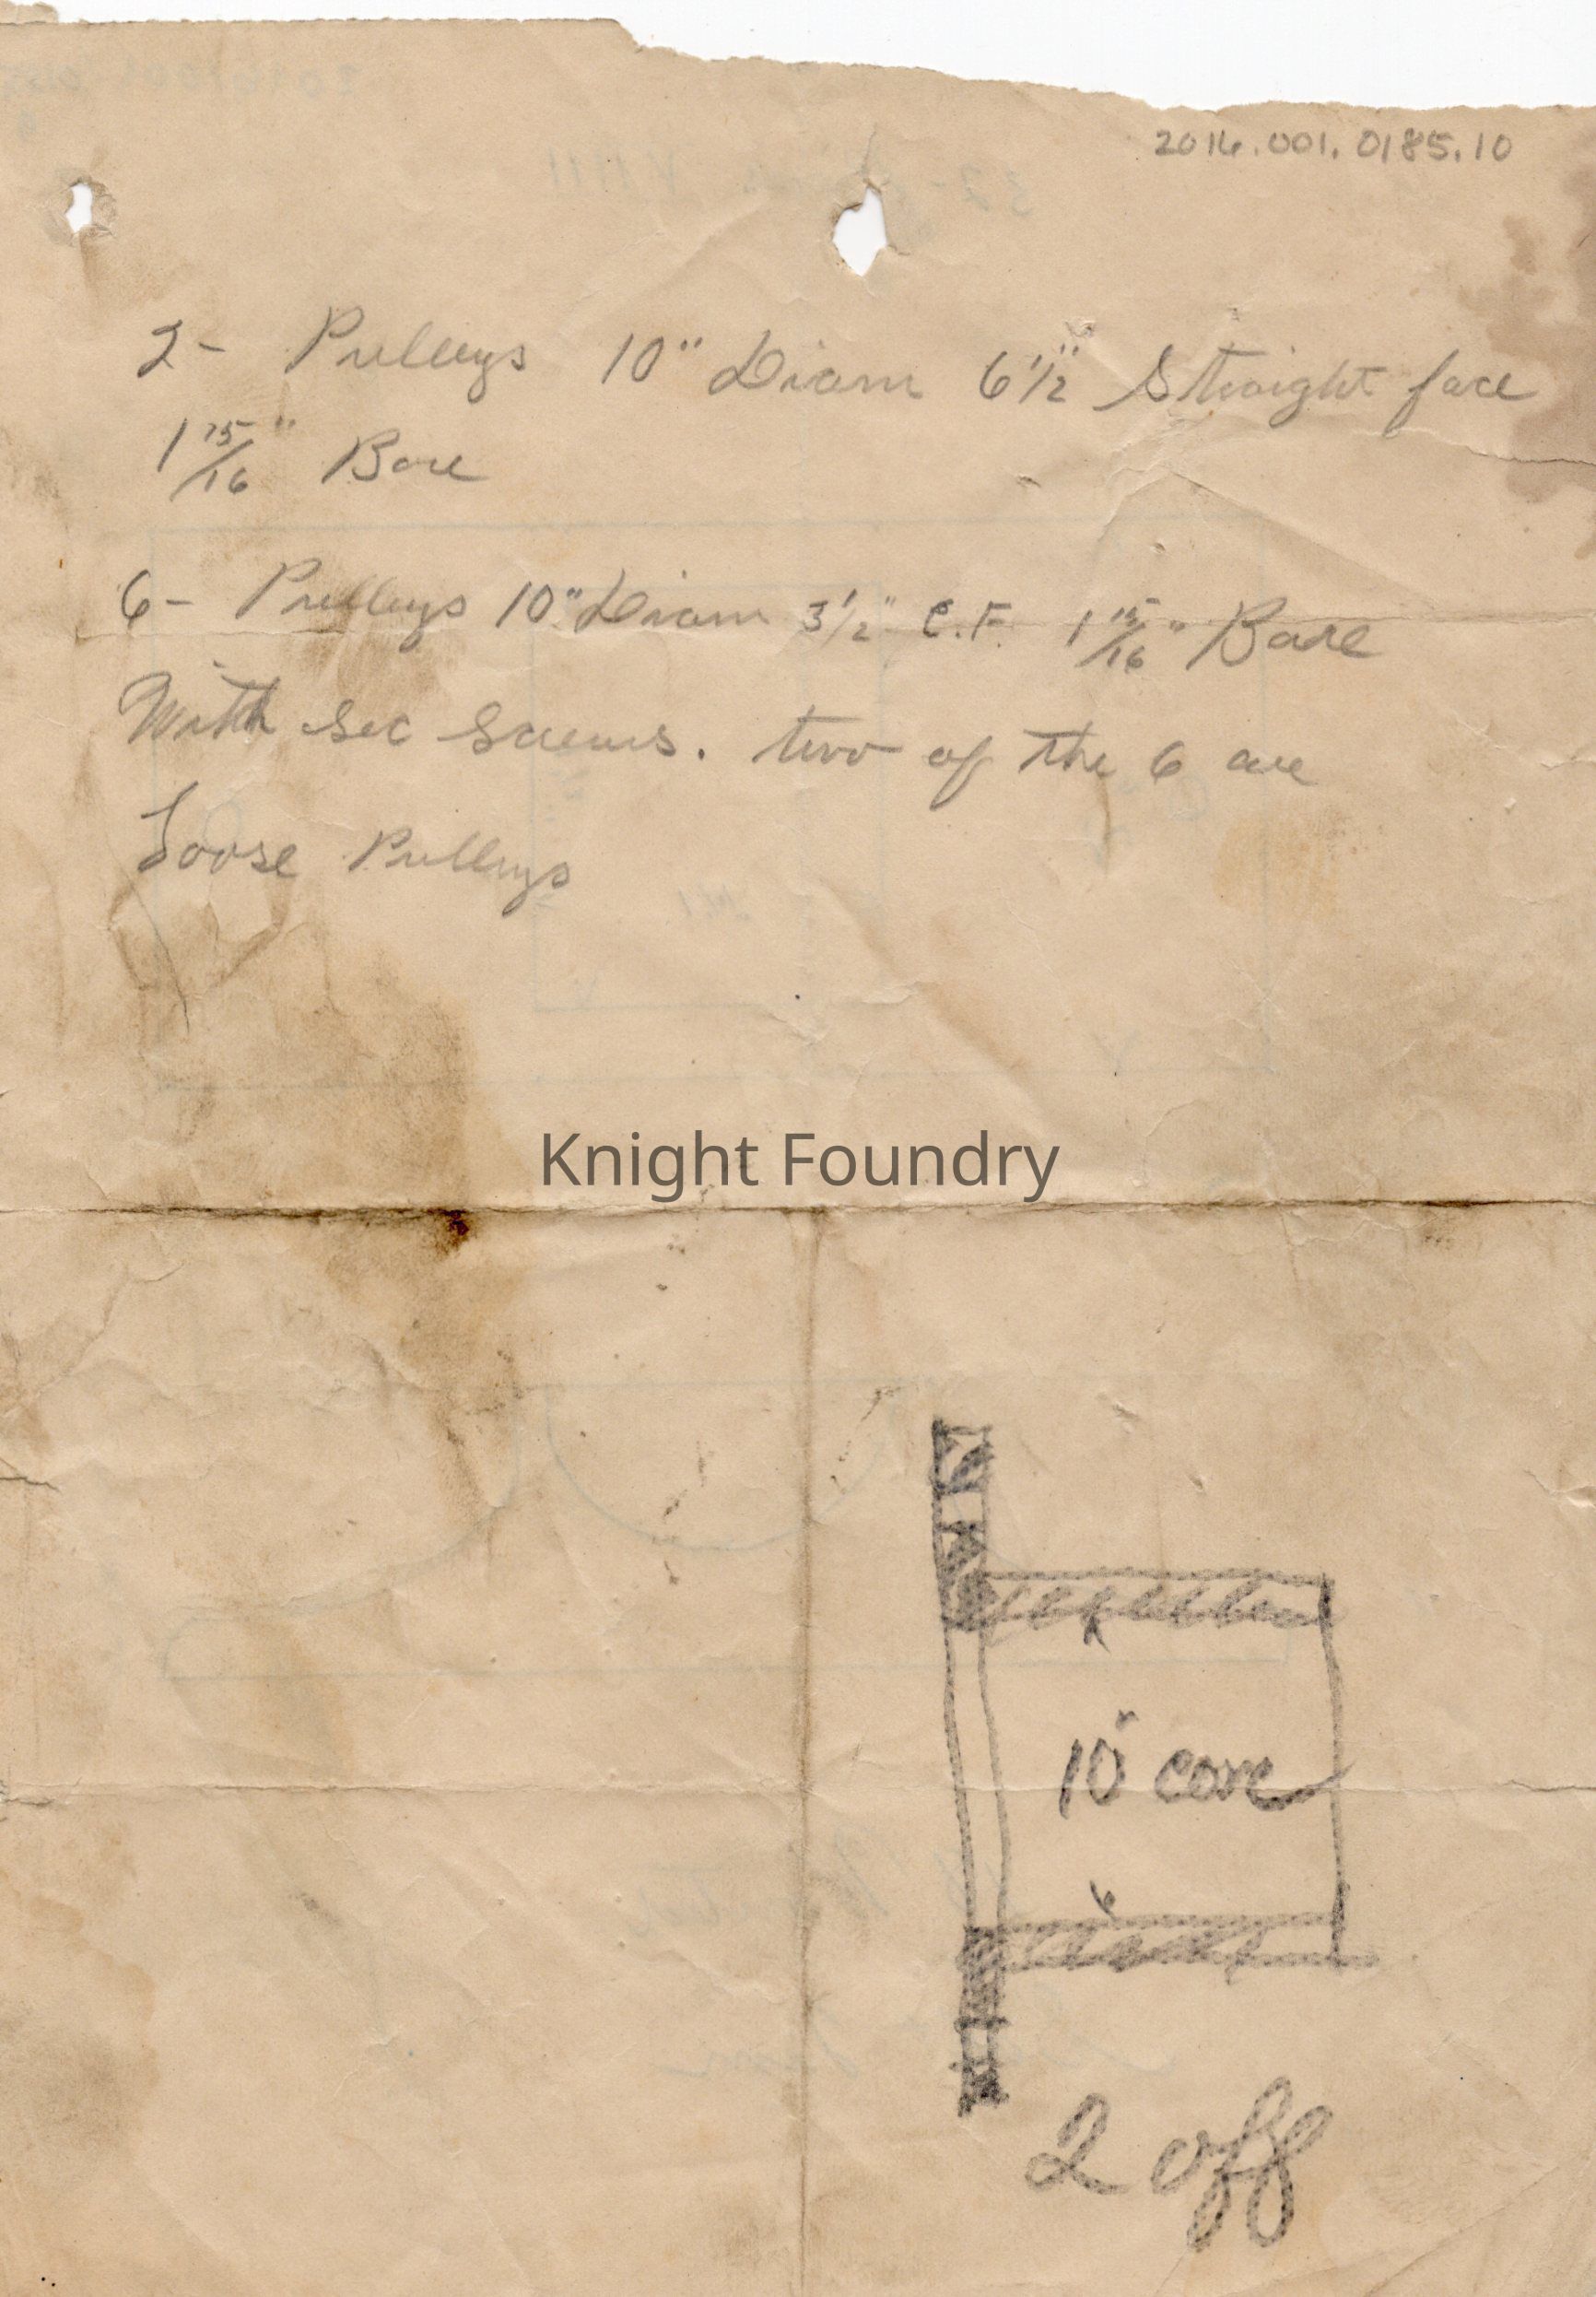 2016.001.0185.10
2- Pulleys 10" Diam 6 1/2" Straight face
1 15/16" Bore
6- Pulleys 10" Diam 3 1/2" C.F. 1 15/16" Bore
With Set Screws. two of the 6 are
Loose Pulleys
Knight Foundry
10" core
2 off